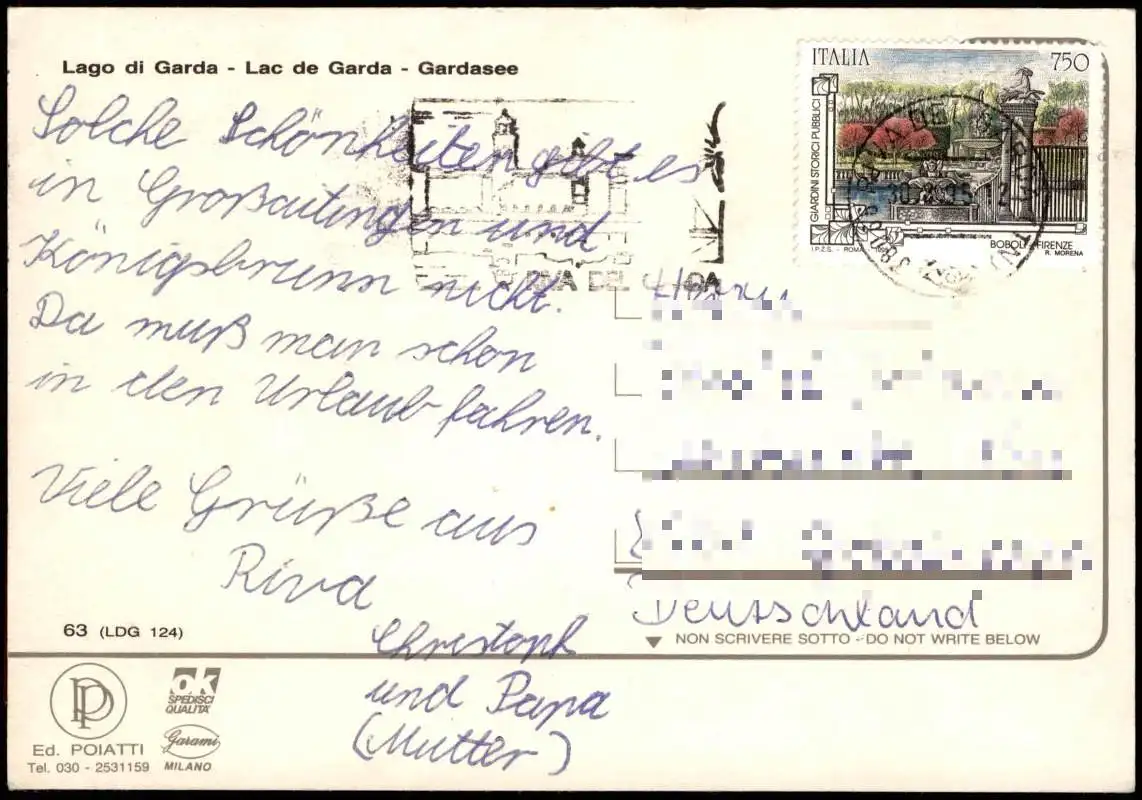 Lago di Garda - Lac de Garda - Gardasee
Solche Schönheiten gibt es
in Großaitingen und
Königsbrunn nicht.
Da muß man schon
in den Urlaub fahren.
Viele Grüße aus
Riva
Christoph
und Papa
(Mutter)
63 (LDG 124)
Ed. POIATTI
Tel. 030 - 2531159
ok
SPEDISCI
QUALITA'
Garami
MILANO
ITALIA 750
GIARDINI STORICI PUBBLICI
I.P.Z.S. - ROMA
BOBOLI - FIRENZE
R. MORENA
RIVA DEL GARDA
Deutschland
NON SCRIVERE SOTTO - DO NOT WRITE BELOW